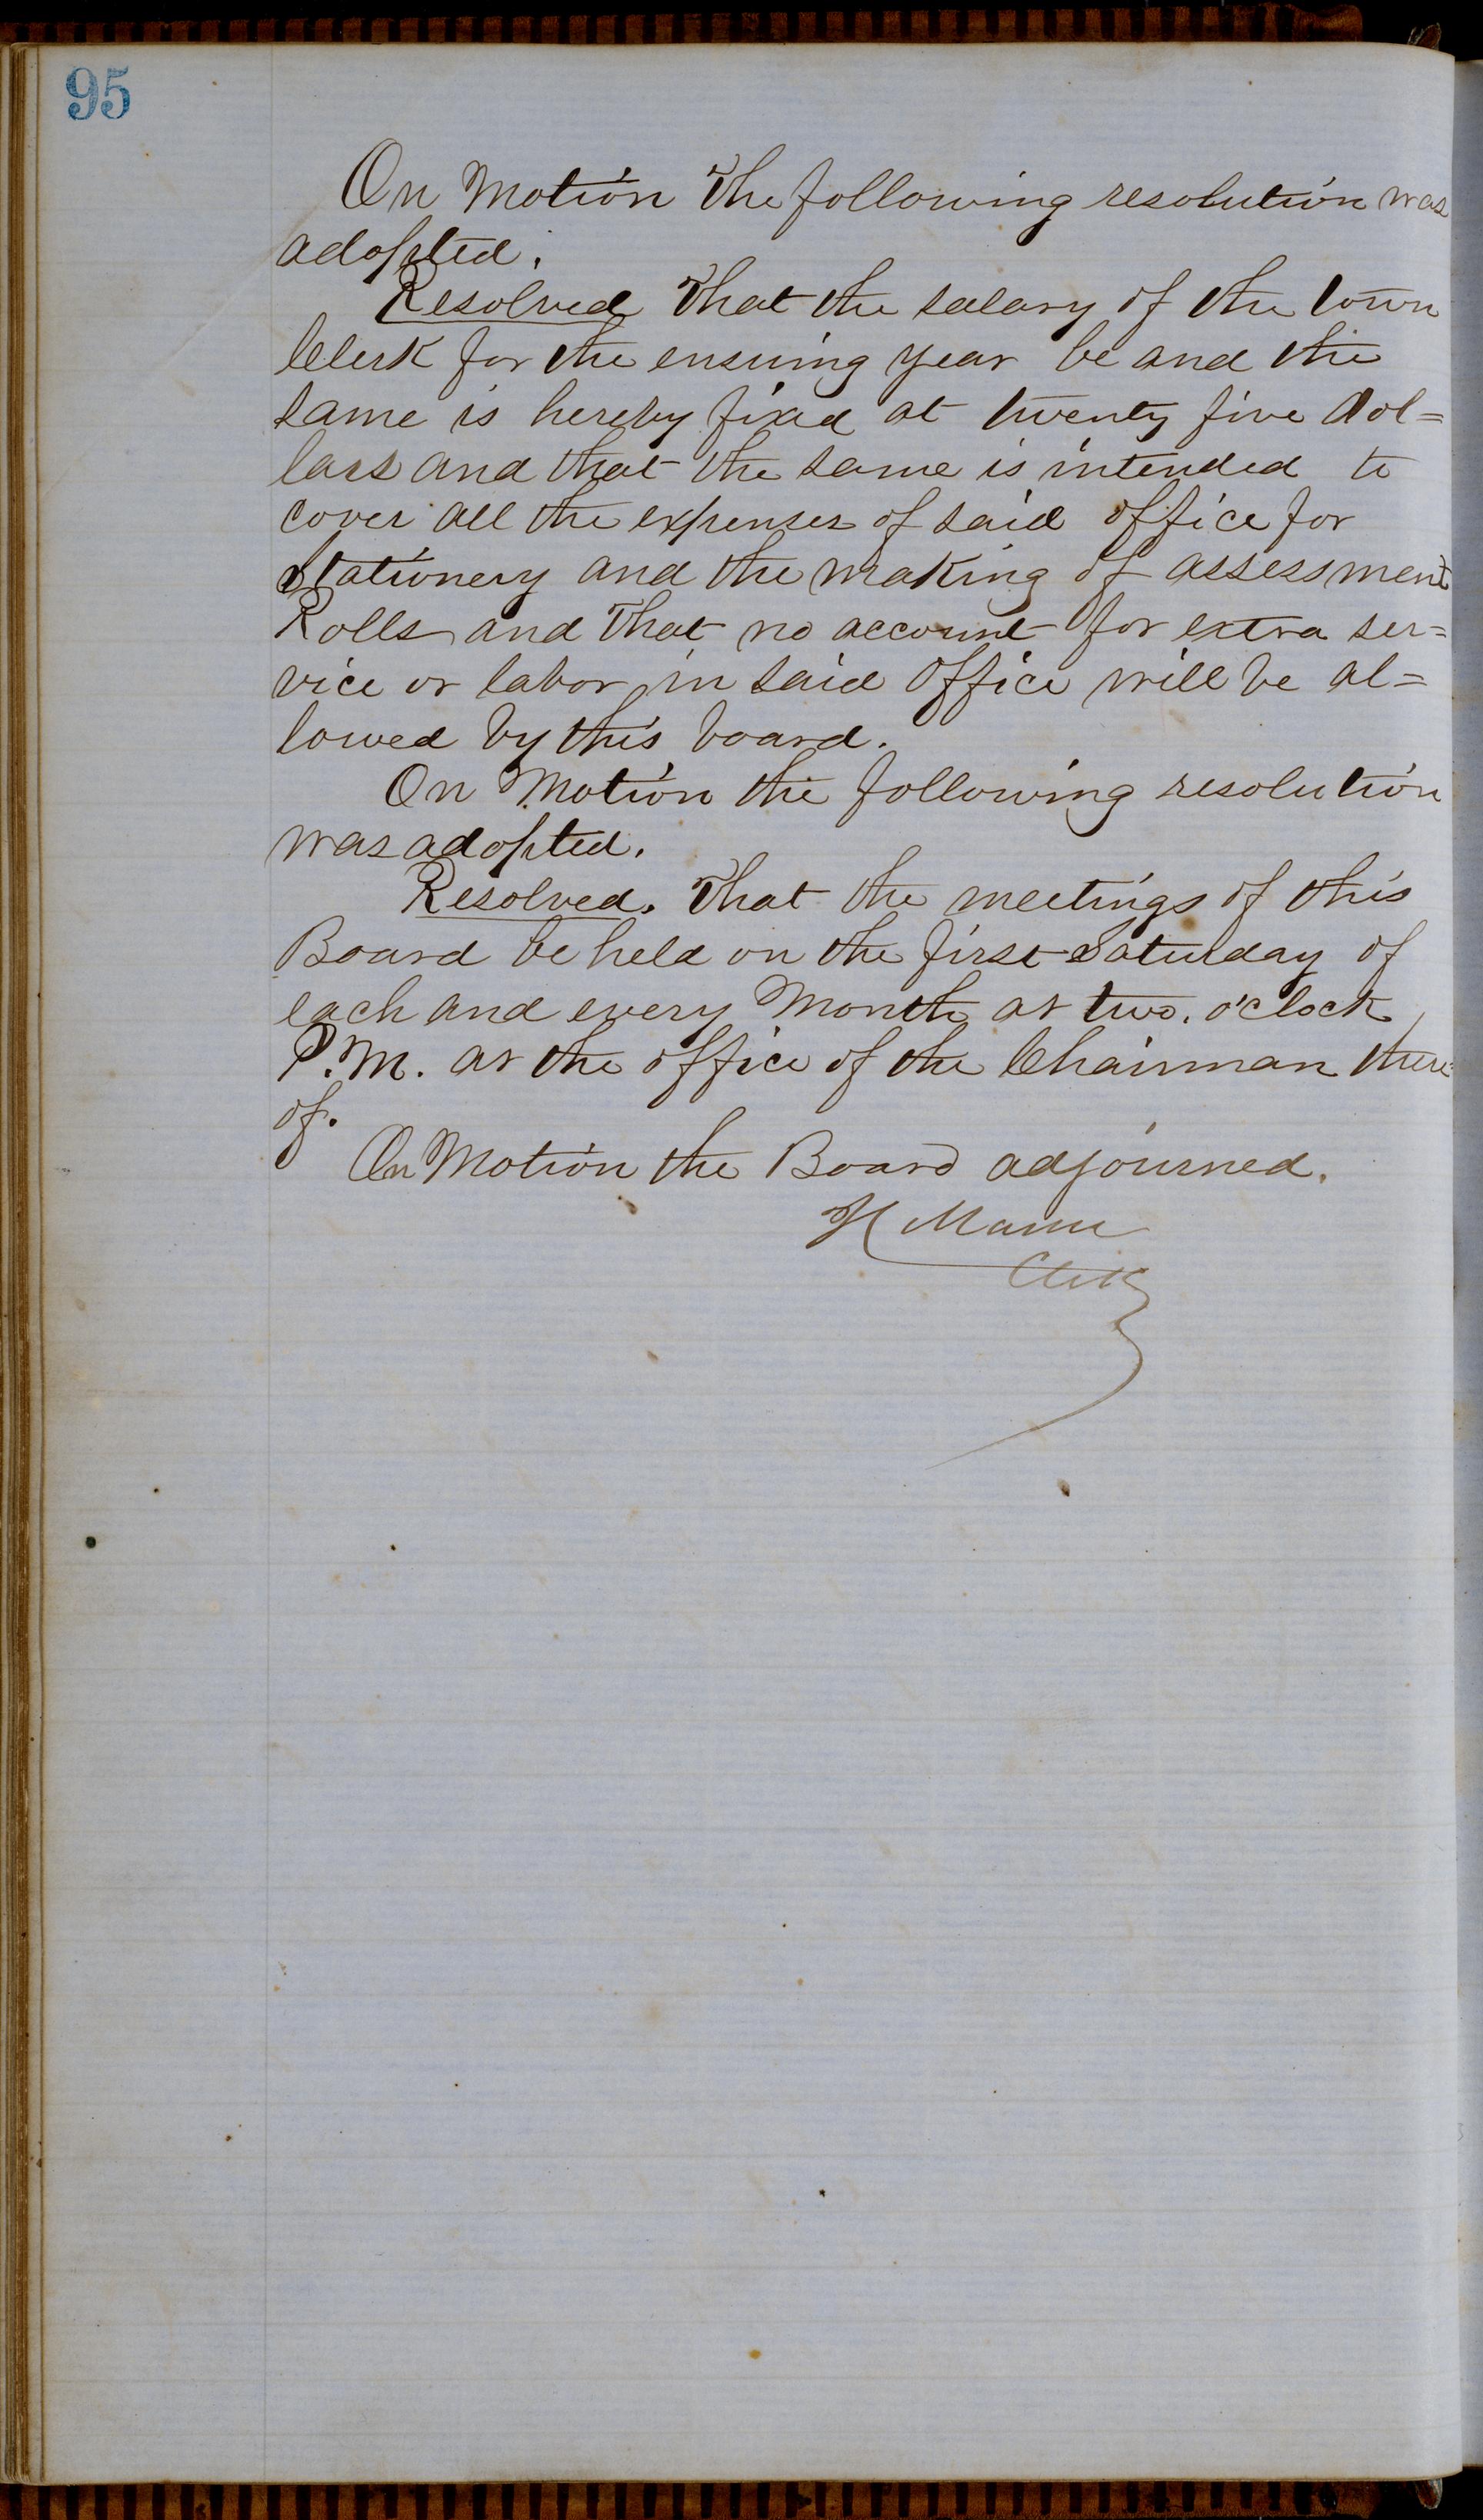 95
On Motion The following resolution was
adopted.
Resolved That the salary of the town
Clerk for the ensuing year be and the
same is hereby fixed at twenty five dol=
lars and that the same is intended to
cover all the expenses of said office for
Stationery and the making of assessment
Rolls and That no account for extra ser=
vice or labor in said office will be al=
lowed by this board.
On Motion the following resolution
was adopted.
Resolved. That the meetings of this
Board be held on the first Saturday of
each and every Month at two. o'clock
P.M. at the office of the Chairman there
of.
On Motion the Board adjourned.
H Mann
Clerk